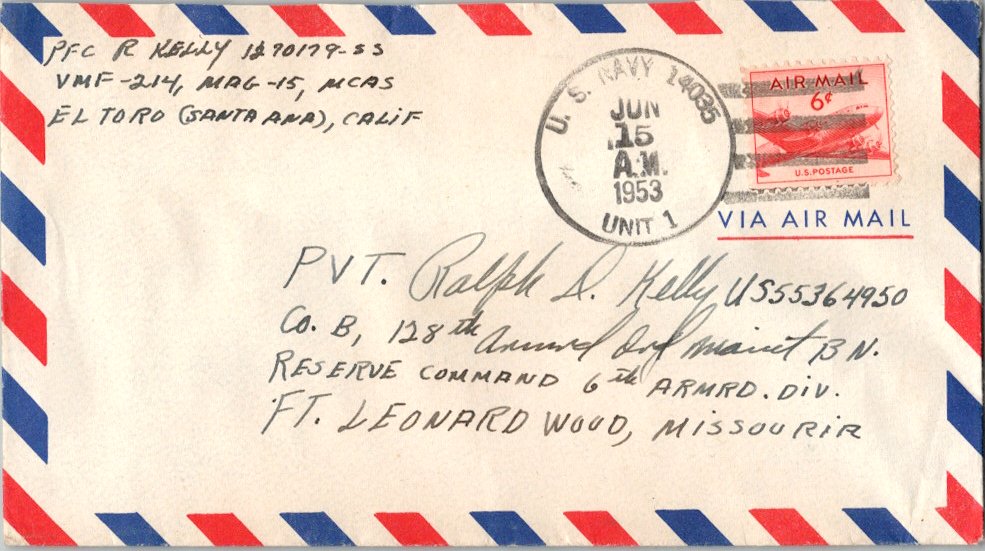 PFC R KELLY 1270179-SS
VMF-214, MAG-15, MCAS
EL TORO (SANTA ANA), CALIF
U. S. NAVY 14035
JUN
15
A.M.
1953
UNIT 1
AIR MAIL
6¢
U.S. POSTAGE
VIA AIR MAIL
PVT. Ralph D. Kelly US55364950
Co. B, 128th Armrd Ord Maint BN.
RESERVE COMMAND 6th ARMRD. DIV.
FT. LEONARD WOOD, MISSOURIR